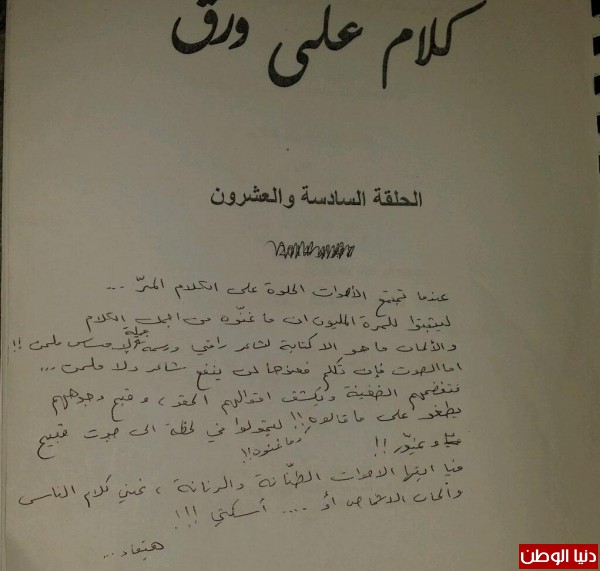 كلام على ورق
الحلقة السادسة والعشرون
عندما تجتمع الأصوات الحلوة على الكلام المرّ ...
ليثبتوا للمرة المليون ان ما غنّوه من اجمل الكلام
والألحان ما هو الا كتابة لشاعر راقي ورسمة جميلة ملحن !!
اما الصوت فإن تكلم لن ينفع شاعر ولا ملحن ...
فتفضحهم الضغينة وتكشف اقوالهم الحقد ، وقبح وجوههم
يطغو على ما قالوه !!! ليتحولوا في لحظة الى صوت قبيح
وما غنوه !!
!!
فيا ايتها الاصوات الطنّانة والرنانة ، غني كلام الناس
وألحان الاشخاص أو .... أسكتي !!!
هيفاء ...
دنيا الوطن